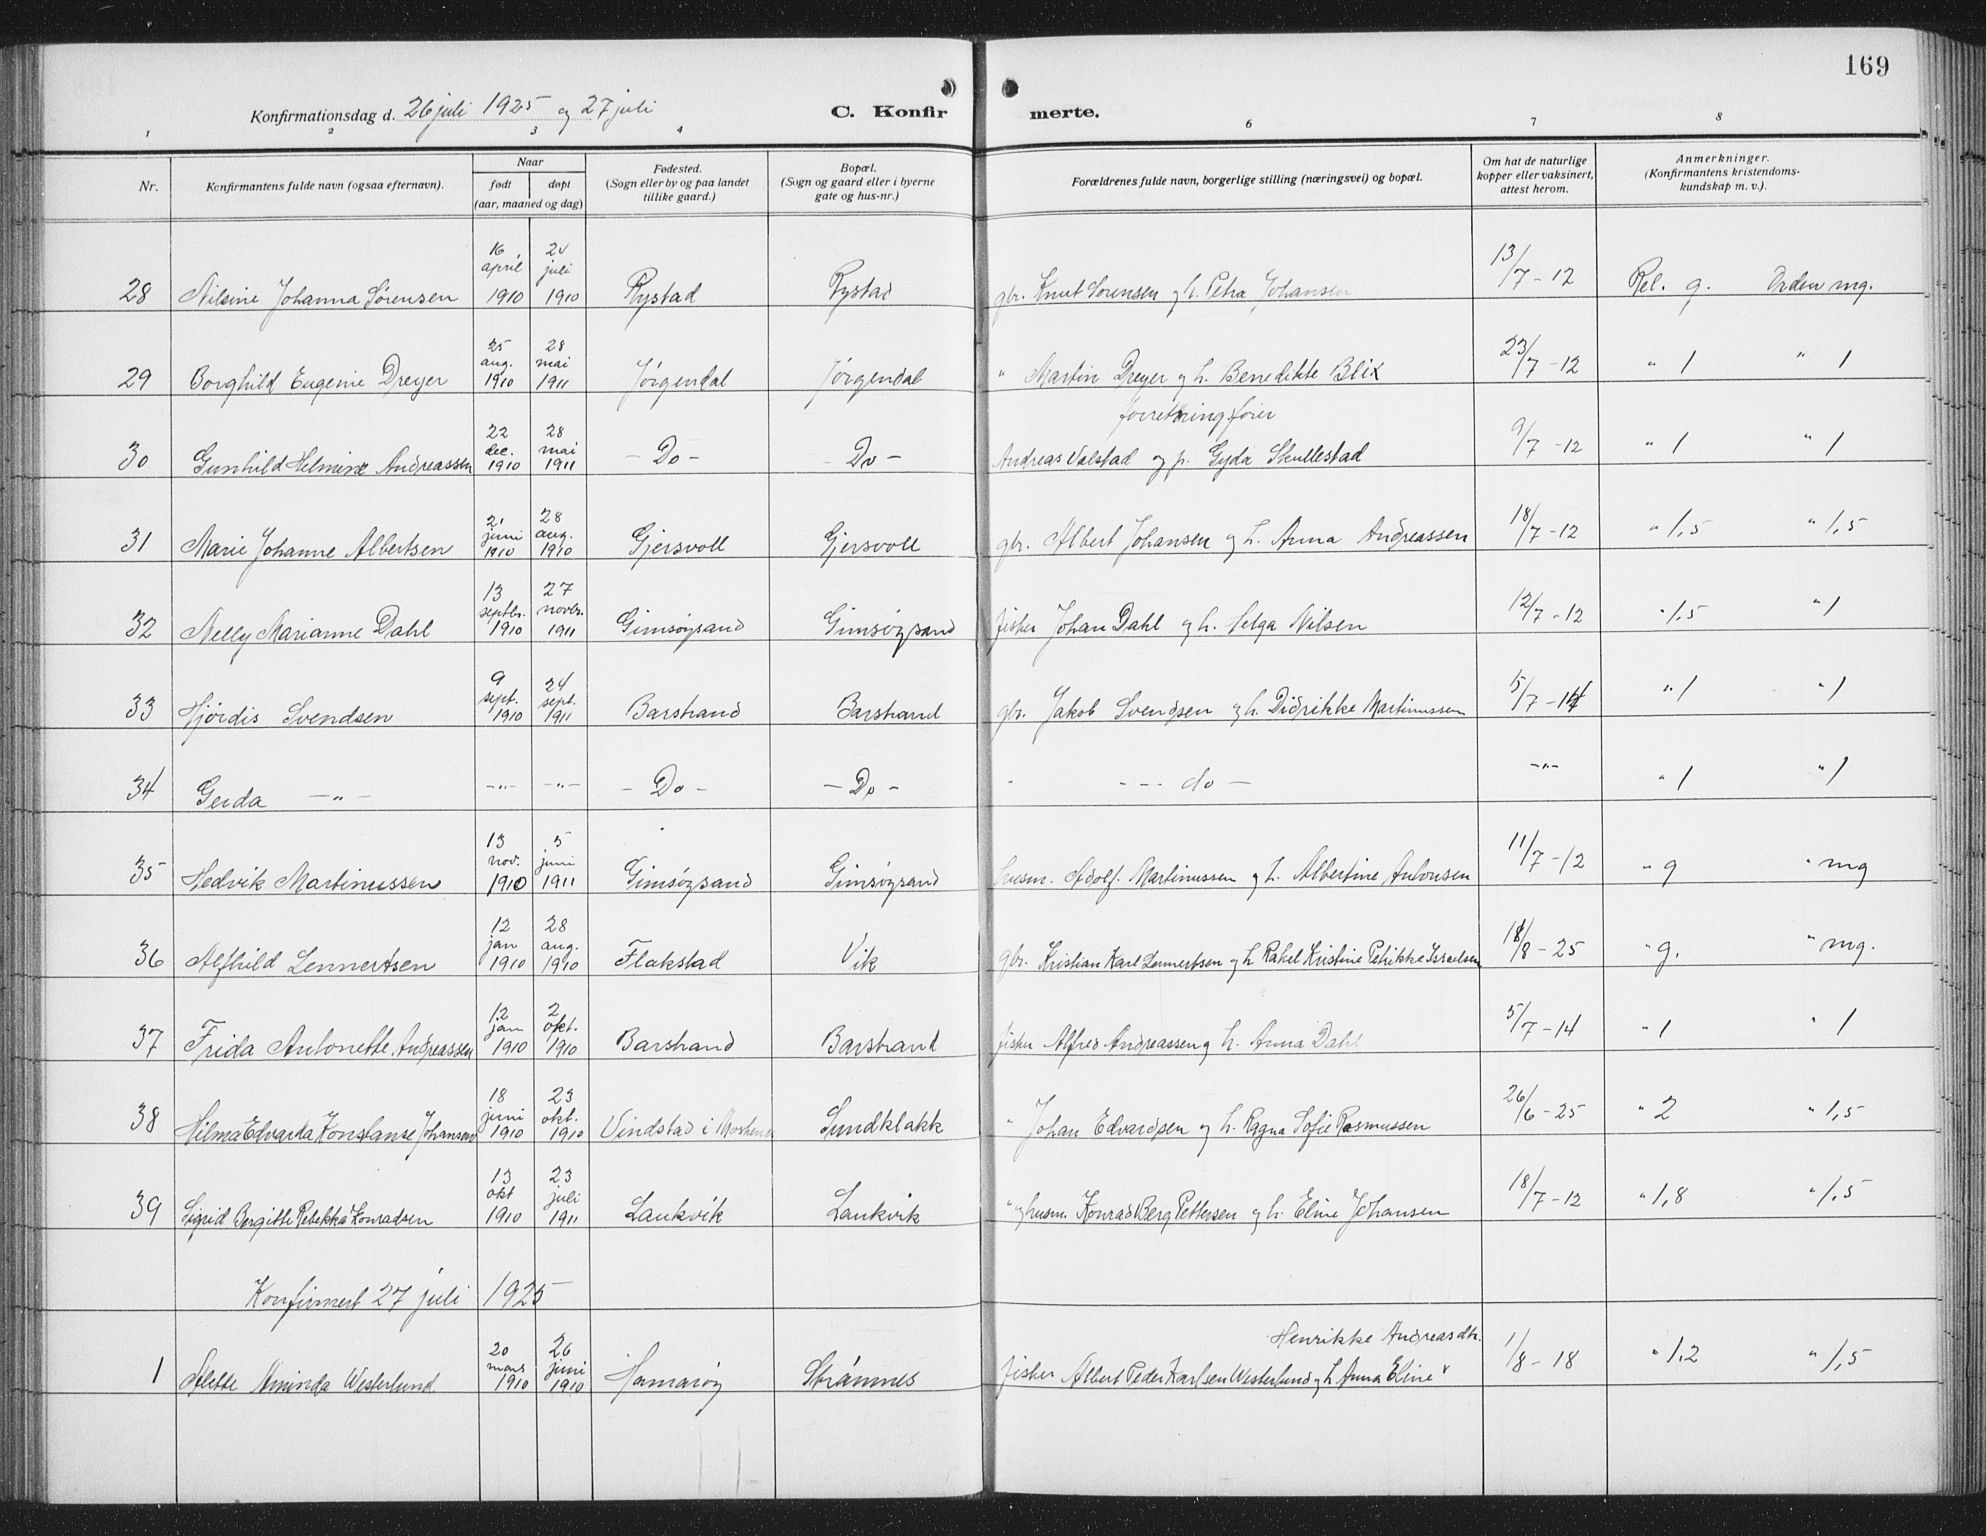 169
Konfirmationsdag d. 26 juli 1925 og 27 juli C. Konfirmerte.
1 2 3 4 6 7 8
Nr. Konfirmantens fulde navn (ogsaa efternavn). Naar født døpt (aar, maaned og dag) Fødested. (Sogn eller by og paa landet tillike gaard.) Bopæl. (Sogn og gaard eller i byerne gate og hus-nr.) Forældrenes fulde navn, borgerlige stilling (næringsvei) og bopæl. Om hat de naturlige kopper eller vaksinert, attest herom. Anmerkninger. (Konfirmantens kristendomskundskap m. v.).
28 Nilsine Johanna Sørensen 16 april 1910 24 juli 1910 Rystad Rystad gbr. Knut Sørensen og h. Petra Johansen 13/7 - 12 Rel. g. Orden mg.
29 Borghild Eugenie Dreyer 25 aug. 1910 28 mai 1911 Jørgendal Jørgendal " Martin Dreyer og h. Benedikte Blix 23/7 - 12 " 1 " 1
30 Gunhild Helmine Andreassen 22 dec. 1910 28 mai 1911 - Do - - Do - forretningsfører Andreas Valstad og p. Gyda Skullestad 9/7 - 12 " 1 " 1
31 Marie Johanne Albertsen 21 juni 1910 28 aug. 1910 Gjersvoll Gjersvoll gbr. Albert Johansen og h. Anna Andreassen 18/7 - 12 " 1,5 " 1,5
32 Nelly Marianne Dahl 13 septbr. 1910 27 novbr. 1911 Gimsøysand Gimsøysand fisker Johan Dahl og h. Helga Nilsen 12/7 - 12 " 1.5 " 1
33 Hjørdis Svendsen 9 sept. 1910 24 sept. 1911 Barstrand Barstrand gbr. Jakob Svendsen og h. Didrikke Martinussen 5/7 - 14 " 1 " 1
34 Gerda - " - - " - - " - - Do - - Do - " - - - do - - " - " 1 " 1
35 Hedvik Martinussen 13 nov. 1910 5 juni 1911 Gimsøysand Gimsøysand husm. Adolf Martinussen og h. Albertine Antonsen 11/7 - 12 " g " mg
36 Alfhild Lennertsen 12 jan 1910 28 aug. 1910 Flakstad Vik gbr. Kristian Karl Lennertsen og h Rakel Kristine Petrikke Israelsen 18/8 - 25 " g. " mg.
37 Frida Antonette Andreassen 12 jan 1910 2 okt. 1910 Barstrand Barstrand fisker Alfred Andreassen og h. Anna Dahl 5/7 - 14 " 1 " 1
38 Hilma Edvarda Konstanse Johansen 18 juni 1910 23 okt. 1910 Vindstad i Moskenes Sundklakk " Johan Edvardsen og h. Ragna Sofie Rasmussen 26/6 - 25 " 2 " 1,5
39 Sigrid Bergitte Rebekka Konradsen 13 okt 1910 23 juli 1911 Laukvik Laukvik " og husm. Konrad Berg Pettersen og h. Eline Johansen 18/7 - 12 " 1,8 " 1,5
Konfirmert 27 juli 1925
1 Alette Aminda Westerlund 20 mars 1910 26 juni 1910 Hamarøy Strømnes fisker Albert Peder Karlsen Westerlund og h Anna Eline Henrikke Andreasdtr. 1/8 - 18 " 1,2 " 1,5